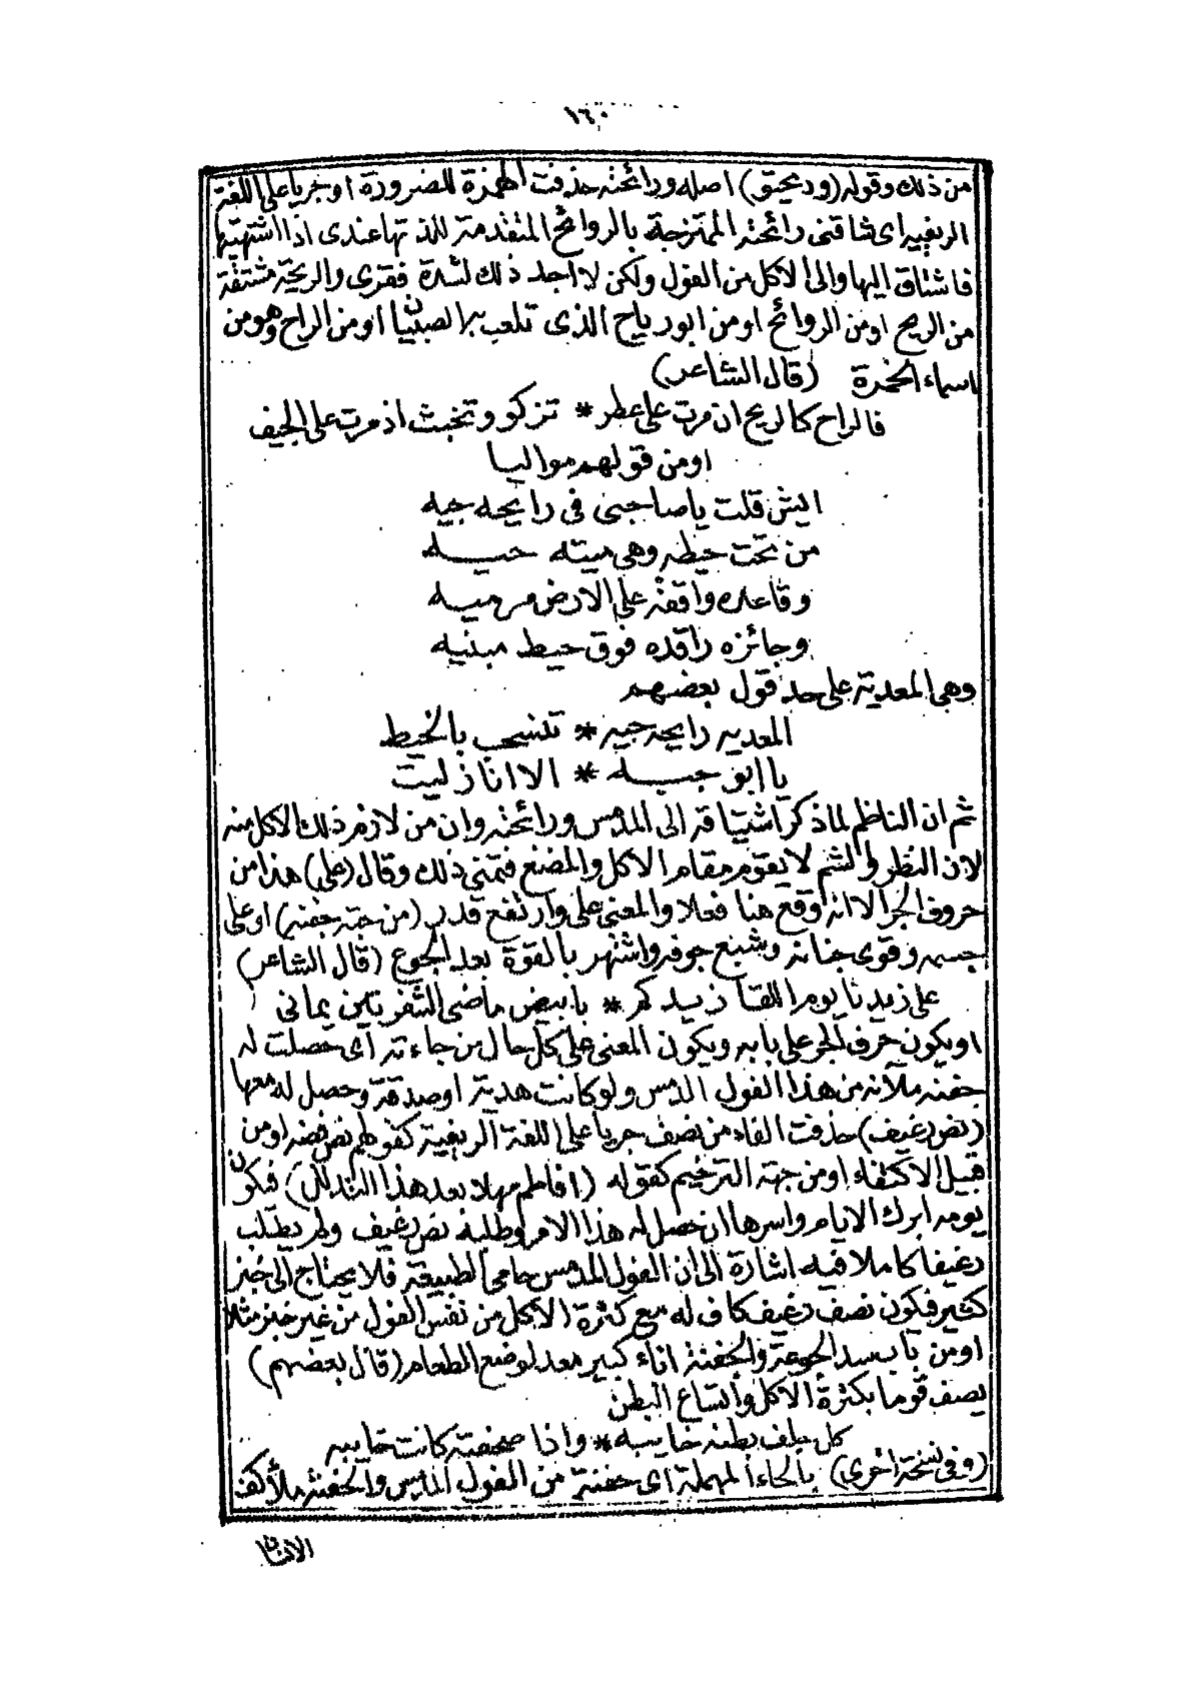 ١٦٠
من ذلك وقوله (وريحتو) اصله ورائحته حذفت الهمزة للضرورة اوجريا على اللغة
الريفيه اى شاقنى رائحته الممتزجة بالروائح المتقدمة للذتها عندى اذا اشتهيتها
فاشتاق اليها والى الاكل من الفول ولكن لا اجد ذلك لشدة فقرى والريحة مشتقة
من الريح اومن الروائح اومن ابورياح الذى تلعب به الصبيان اومن الراح وهو من
اسماء الخمرة (قال الشاعر)
فالراح كالريح ان مرت على عطر * تزكو وتخبث اذ مرت على الجيف
اومن قولهم مواليا
اليش قلت يا صاحبى فى رايحه جيه
من تحت حيطه وهى ميته حيــه
وقاعده واقفة على الارض مرميه
وجائزه راقده فوق حيط مبنيه
وهى المعدية على حد قول بعضهم
المعديه رايحه جيه * تنسحب بالخيط
يا ابو جبــه * الا انا زليت
ثم ان الناظم لما ذكر اشتياقه الى المدمس ورائحته وان من لازم ذلك الاكل منه
لان النظر والشم لا يقوم مقام الاكل والمضغ فتمنى ذلك وقال (على) هذا من
حروف الجر الا انه وقع هنا فعلا والمعنى على وارتفع قدر (من جته جفنه) اوعلى
جسمه وقوى جنانه وشبع جوفه واشتهر بالقوة بعد الجوع (قال الشاعر)
على زيدنا يوم اللقا زيدكم * بابيض ماضى الشفرتين يمانى
اويكون حرف الجر على بابه ويكون المعنى على كل حال من جاءته اى حصلت له
جفنة ملآنه من هذا الفول المدمس ولو كانت هدية اوصدقة وحصل له معها
(نص رغيف) حذفت الفاء من نصف جريا على اللغة الريفية كقولهم نص فضه اومن
قبيل الاكتفاء اومن جهة الترخيم كقوله (افاطم مهلا بعد هذا التدلل) فيكون
يومه ابرك الايام واسرها ان حصل له هذا الامر وطلبه نص رغيف ولم يطلب
رغيفا كاملا فيه اشارة الى ان الفول المدمس حامى الطبيعة فلا يحتاج الى خبز
كثير فيكون نصف رغيف كاف له مع كثرة الاكل من نفس الفول من غير خبز مثلا
اومن باب سد الجوعة والجفنة اناء كبير معد لوضع الطعام (قال بعضهم)
يصف قوما بكثرة الاكل واتساع البطن
كل جلف بطنه خابيه * واذا صحفته كانت خابيه
(وفى نسخة اخرى) بالحاء المهملة اى حفنة من الفول المدمس والحفنة ملأ كف
الانسان